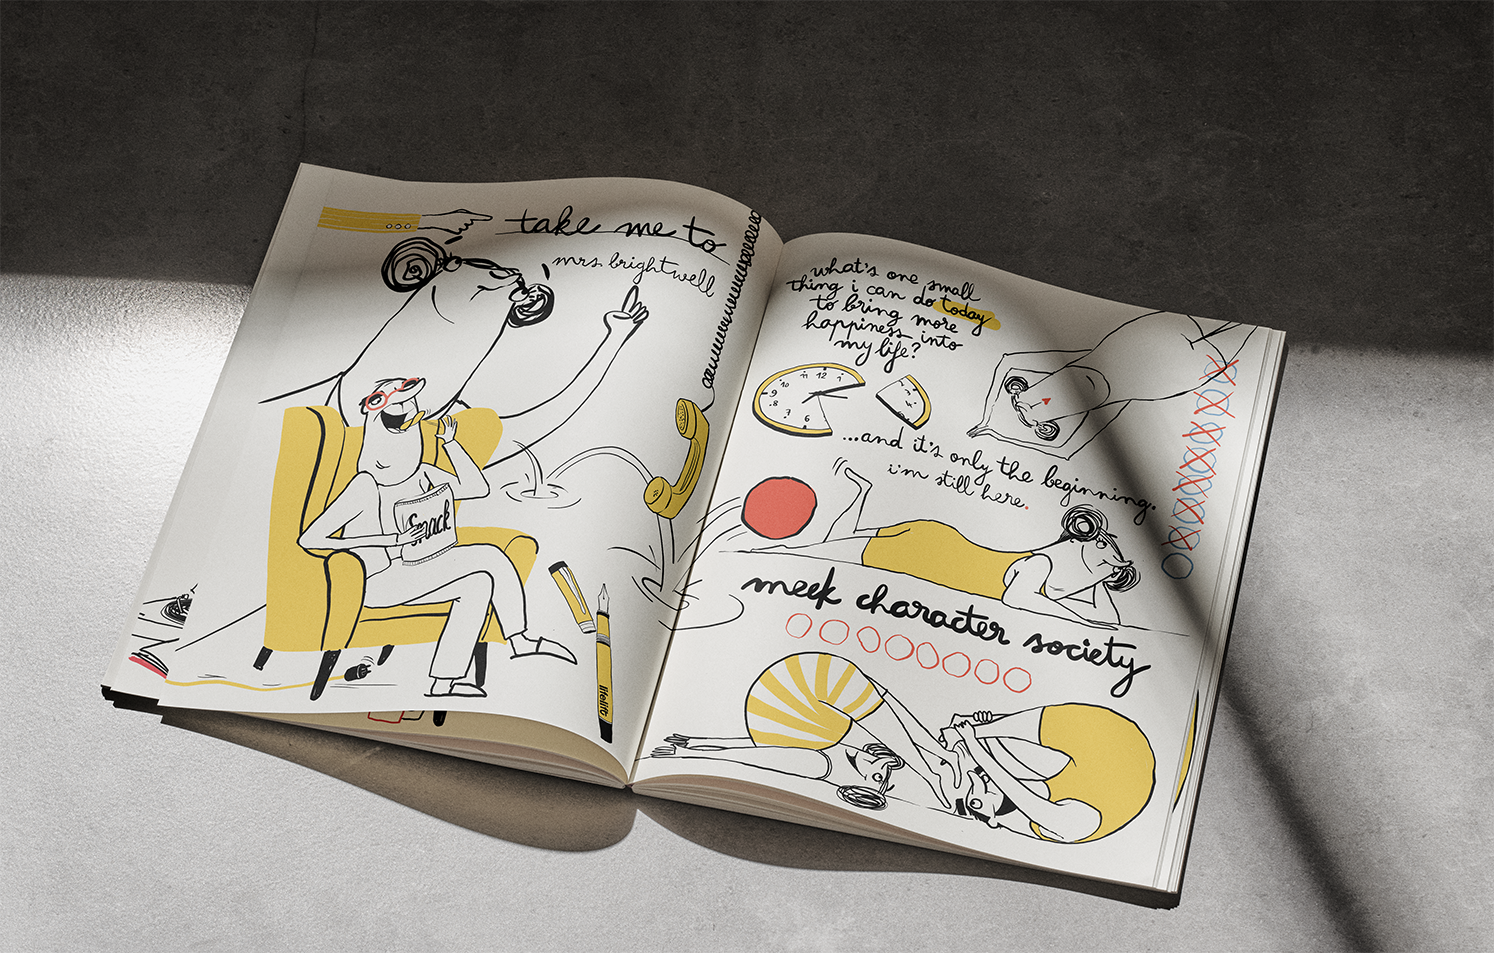 take me to
mrs brightwell
Snack
what's one small
thing i can do today
to bring more
happiness into
my life?
11 12 1
10
9
8
7 6
...and it's only the beginning.
i'm still here.
meek character society